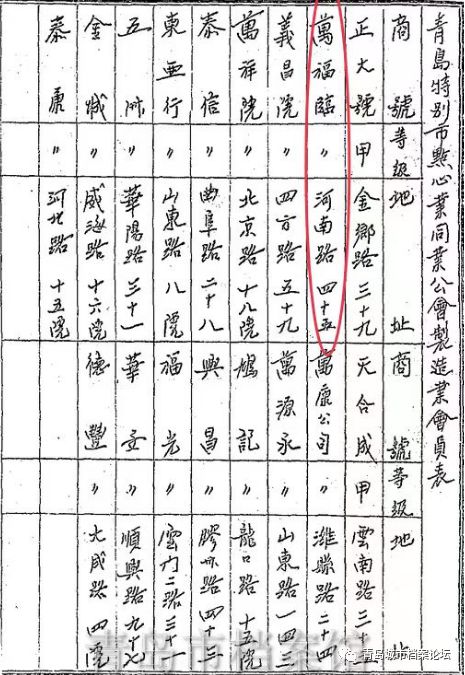 青島特別市點心業同業公會製造業會員表
商號 等級 地址 商號 等級 地址
正大號 甲 金鄉路三十九 天合成 甲 雲南路三十
萬福臨 〃 河南路四十五 萬康公司 〃 濰縣路二十四
義昌院 〃 四方路五十九 萬源永 〃 山東路一四三
萬祥院 〃 北京路十八院 記 〃 龍口路十五院
泰信 〃 曲阜路二十八 興昌 〃 膠州路四十三
東亞行 〃 山東路八院 福光 〃 雲門二路三十一
五洲 〃 華陽路三十一 華 〃 順興路九十七
金城 〃 威海路十六院 德豐 〃 大成路四院
泰康 〃 河北路十五院
青岛市档案馆
青岛城市档案论坛